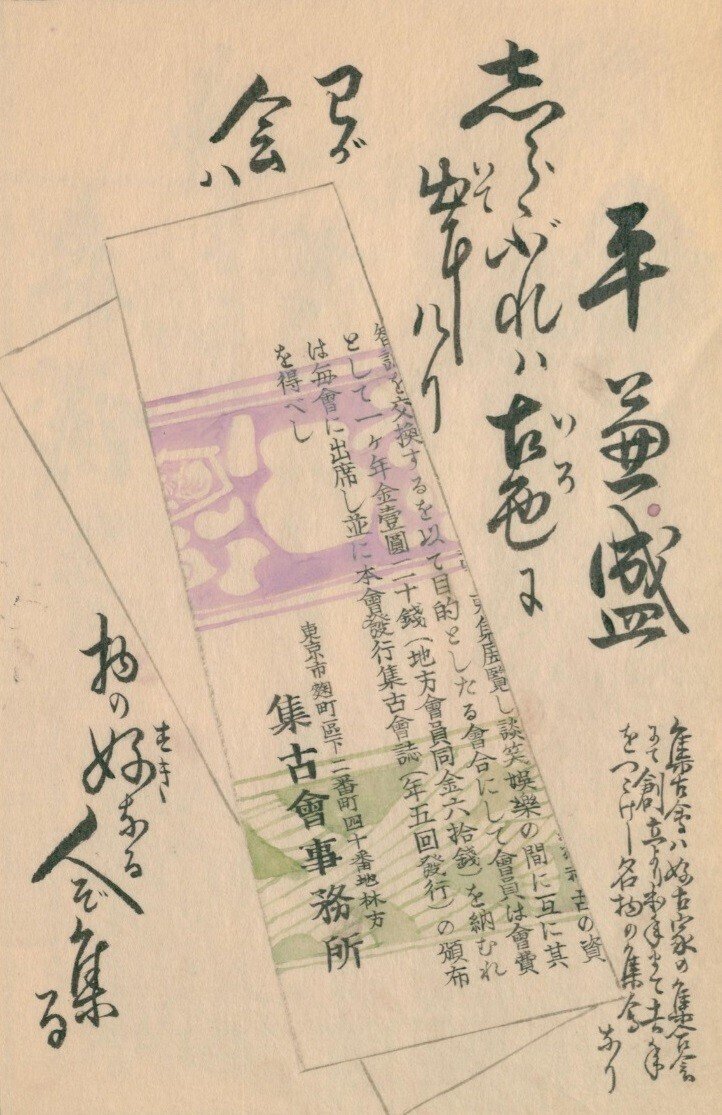 平兼盛
志らぶれハ古色に
いろ
出にけり
いて
わが
会ハ
物の好なる
すき
人ぞ集る
集古会ハ好古家の集合会
にて創立より本年まて
をつゞけし名物の集会
なり
の資
展覧し談笑娯樂の間に互に其
智識を交換するを以て目的としたる會合にして會員は會費
として一ヶ年金壹圓二十錢(地方會員同金六拾錢)を納むれ
は毎會に出席し並に本會發行集古會誌(年五回發行)の頒布
を得べし
東京市麴町區下二番町四十番地林方
集古會事務所